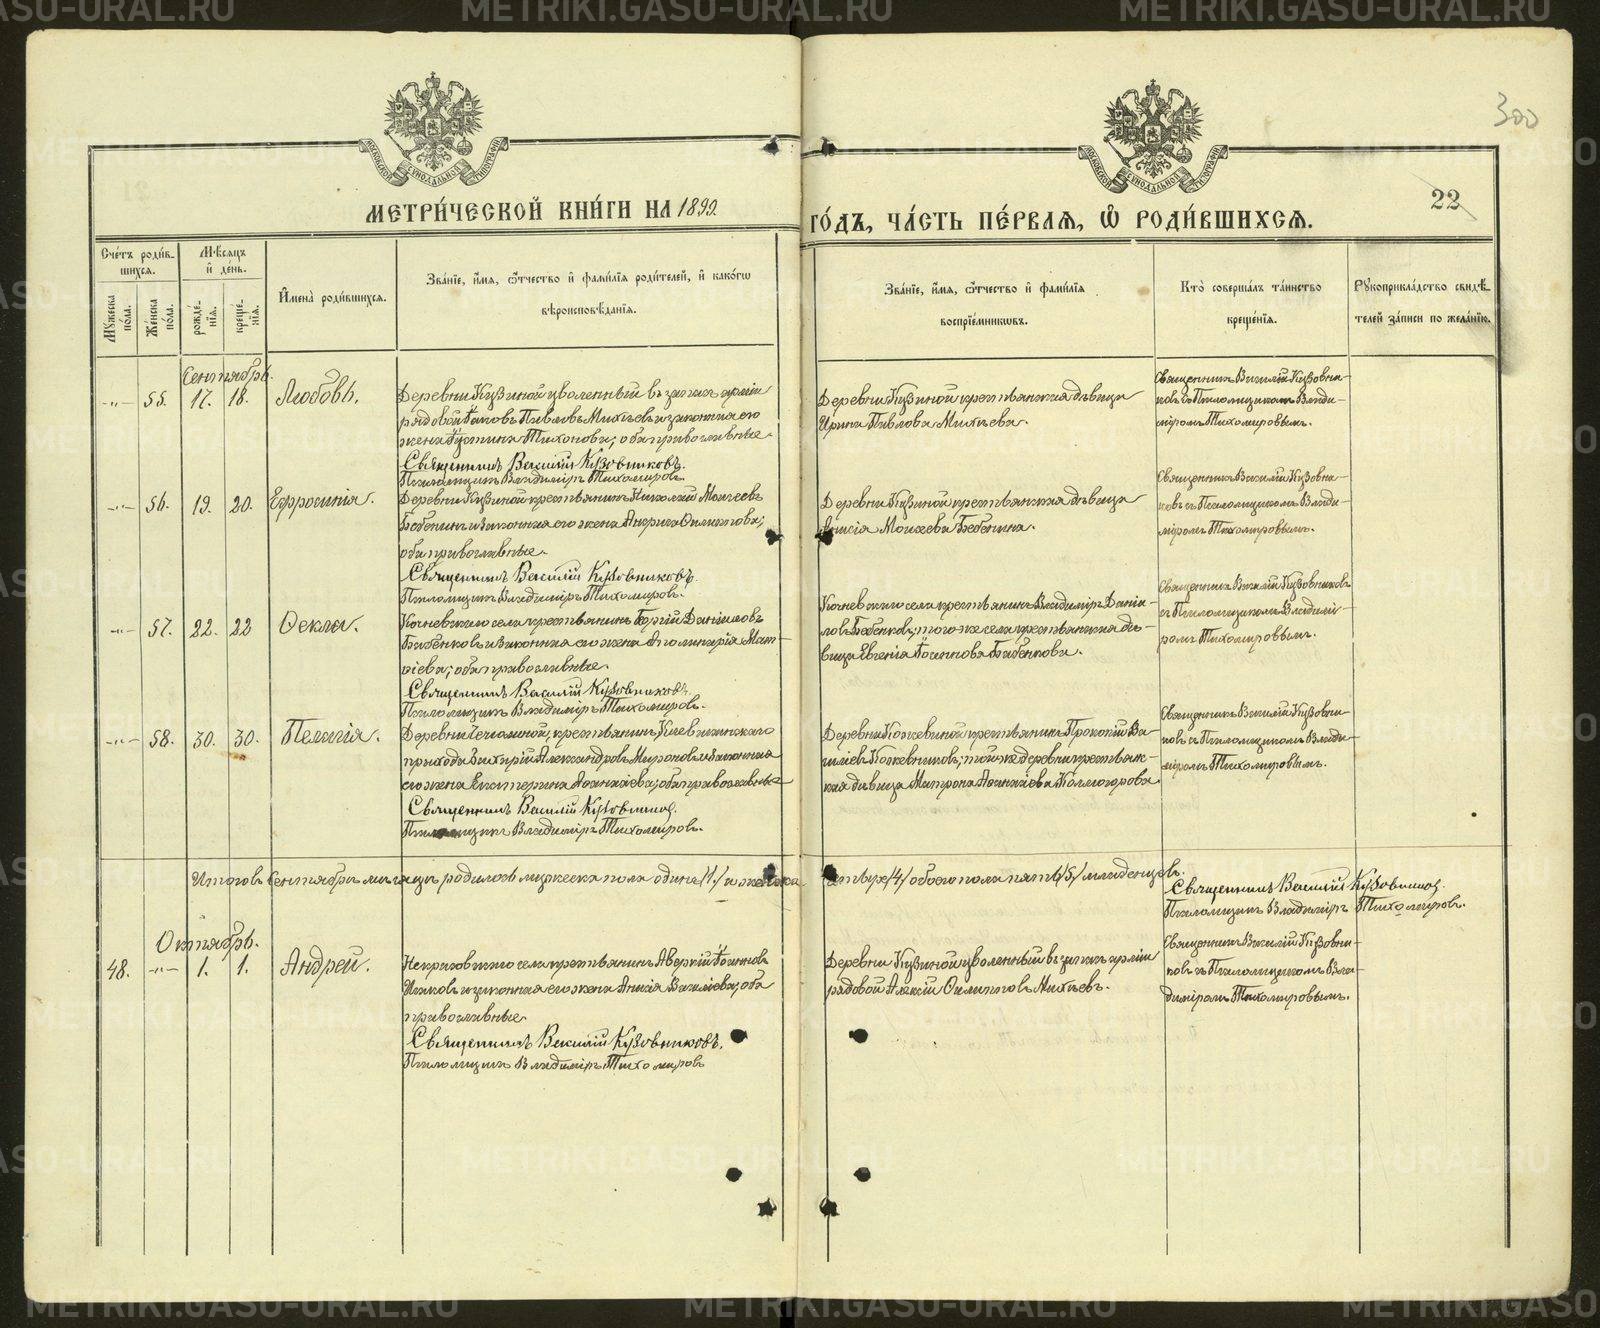 300
22
МЕТРИ́ЧЕСКОЙ КНИ́ГИ НА 1899.
ГО́ДЪ, ЧА́СТЬ ПЕ́РВАЯ, Ѿ РОДИ́ВШИХСЯ.
Сче́тъ роди́в-
шихся.
Му́жеска по́ла.
Же́нска по́ла.
Мѣсяцъ
и҆ де́нь.
рожде́-
нїя.
креще́-
нїя.
И҆мена̀ роди́вшихся.
Зва́нїе, и҆́мя, ѻ҆́тчество и҆ фами́лїя роди́телей, и҆ како́гѡ
вѣроисповѣ́данїя.
Зва́нїе, и҆́мя, ѻ҆́тчество и҆ фами́лїя
воспрїе́мникѡвъ.
Кто̀ соверша́лъ та́инство
креще́нїя.
Рꙋкоприкла́дство свидѣ́-
телей за́писи по жела́нїю.
Сентябрь.
-"- 55. 17. 18. Любовь.
Деревни Кузиной уволенный въ запасъ арміи
рядовой Іаковъ Павловъ Михѣевъ и законная его
жена Іустина Тихонова; оба православные.
Священникъ Василій Кузовниковъ.
Псаломщикъ Владиміръ Тихомировъ.
Деревни Кузиной крестьянская дѣвица
Ирина Павлова Михѣева.
Священникъ Василій Кузовни-
ковъ съ Псаломщикомъ Влади-
міромъ Тихомировымъ.
-"- 56. 19. 20. Евфросинія.
Деревни Кузиной крестьянинъ Николай Моисеевъ
Бабенинъ и законная его жена Филиппова;
оба православные.
Священникъ Василій Кузовниковъ.
Псаломщикъ Владиміръ Тихомировъ.
Деревни Кузиной крестьянская дѣвица
Моисеева Бабенина.
Священникъ Василій Кузовни-
ковъ съ Псаломщикомъ Влади-
міромъ Тихомировымъ.
-"- 57. 22. 22 Ѳекла.
Кочневскаго села крестьянинъ Даніиловъ
Бабенковъ и законная его жена Аполинарія Мат-
ѳіева; оба православные.
Священникъ Василій Кузовниковъ.
Псаломщикъ Владиміръ Тихомировъ.
Кочневскаго села крестьянинъ Владиміръ Даніи-
ловъ Бабенковъ; того же села крестьянская дѣ-
вица Евгенія Іоаннова Бабенкова.
Священникъ Василій Кузовниковъ
съ Псаломщикомъ Владимі-
ромъ Тихомировымъ.
-"- 58. 30. 30. Пелагія.
Деревни крестьянинъ
прихода Захарій Александровъ Мироновъ и законная
его жена Екатерина Аѳанасіева; оба православные
Священникъ Василій Кузовниковъ.
Псаломщикъ Владиміръ Тихомировъ.
Деревни Кожевиной крестьянинъ Прокопій Ва-
силіевъ Кожевниковъ; той же деревни крестьянс-
кая дѣвица Матрона Аѳанасіева Колмогорова
Священникъ Василій Кузовни-
ковъ съ Псаломщикомъ Влади-
міромъ Тихомировымъ.
Итого въ Сентябрѣ мѣсяцѣ родилось мужеска пола одинъ /1/ и женска четыре /4/ обоего пола пять /5/ младенцевъ.
Священникъ Василій Кузовниковъ.
Псаломщикъ Владиміръ Тихомировъ.
Октябрь.
48. -"- 1. 1. Андрей.
Некрасовскаго села крестьянинъ Аверкій Іоанновъ
Исаковъ и законная его жена Анисія Василіева; оба
православные.
Священникъ Василій Кузовниковъ.
Псаломщикъ Владиміръ Тихомировъ
Деревни Кузиной уволенный въ запасъ арміи
рядовой Алексій Филипповъ Михѣевъ.
Священникъ Василій Кузовни-
ковъ съ Псаломщикомъ Вла-
диміромъ Тихомировымъ.
METRIKI.GASO-URAL.RU